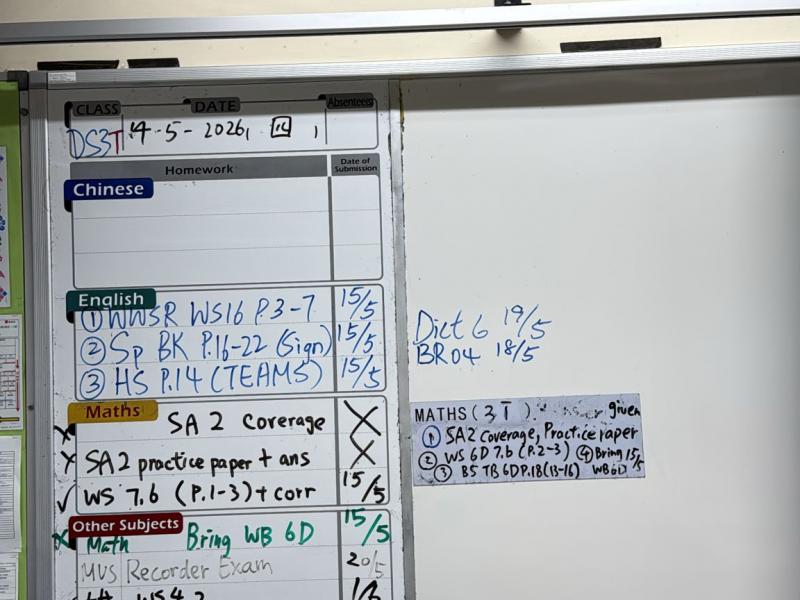 CLASS DATE Absentees
DS3T 14-5-2026,
Homework Date of Submission
Chinese
English
① WWSR WS16 P.3-7 15/5
② Sp BK P.16-22 (Sign) 15/5
③ HS P.14 (TEAMS) 15/5
Maths
x SA 2 Coverage X
x SA2 practice paper + ans X
✓ WS 7.6 (P.1-3) + corr 15/5
Other Subjects
x Math Bring WB 6D 15/5
Recorder Exam 20/5
WS4.2
Dict 6 19/5
BR04 18/5
MATHS (3T) given
① SA2 Coverage, Practice Paper
② WS 6D 7.6 (P.2-3) ④ Bring 15/5
③ B5 TB 6D P.18 (13-16) WB 6D